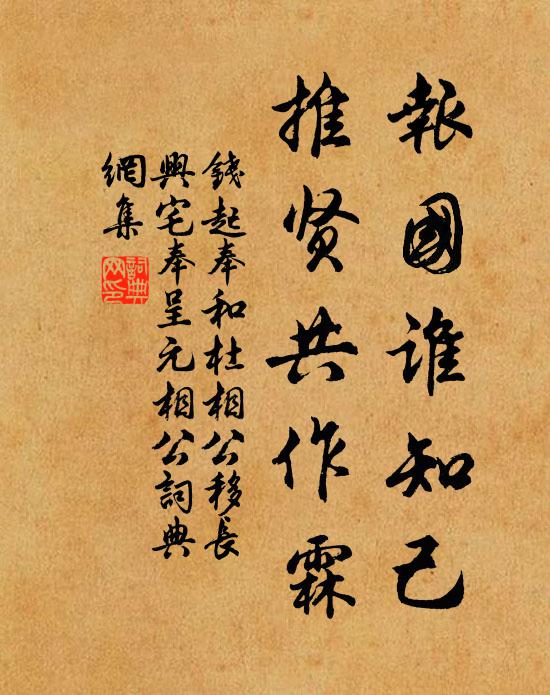 報國誰知己
推贤共作霖
錢起奉和杜相公移長
興宅奉呈元相公詞典
網集
詞典
网印